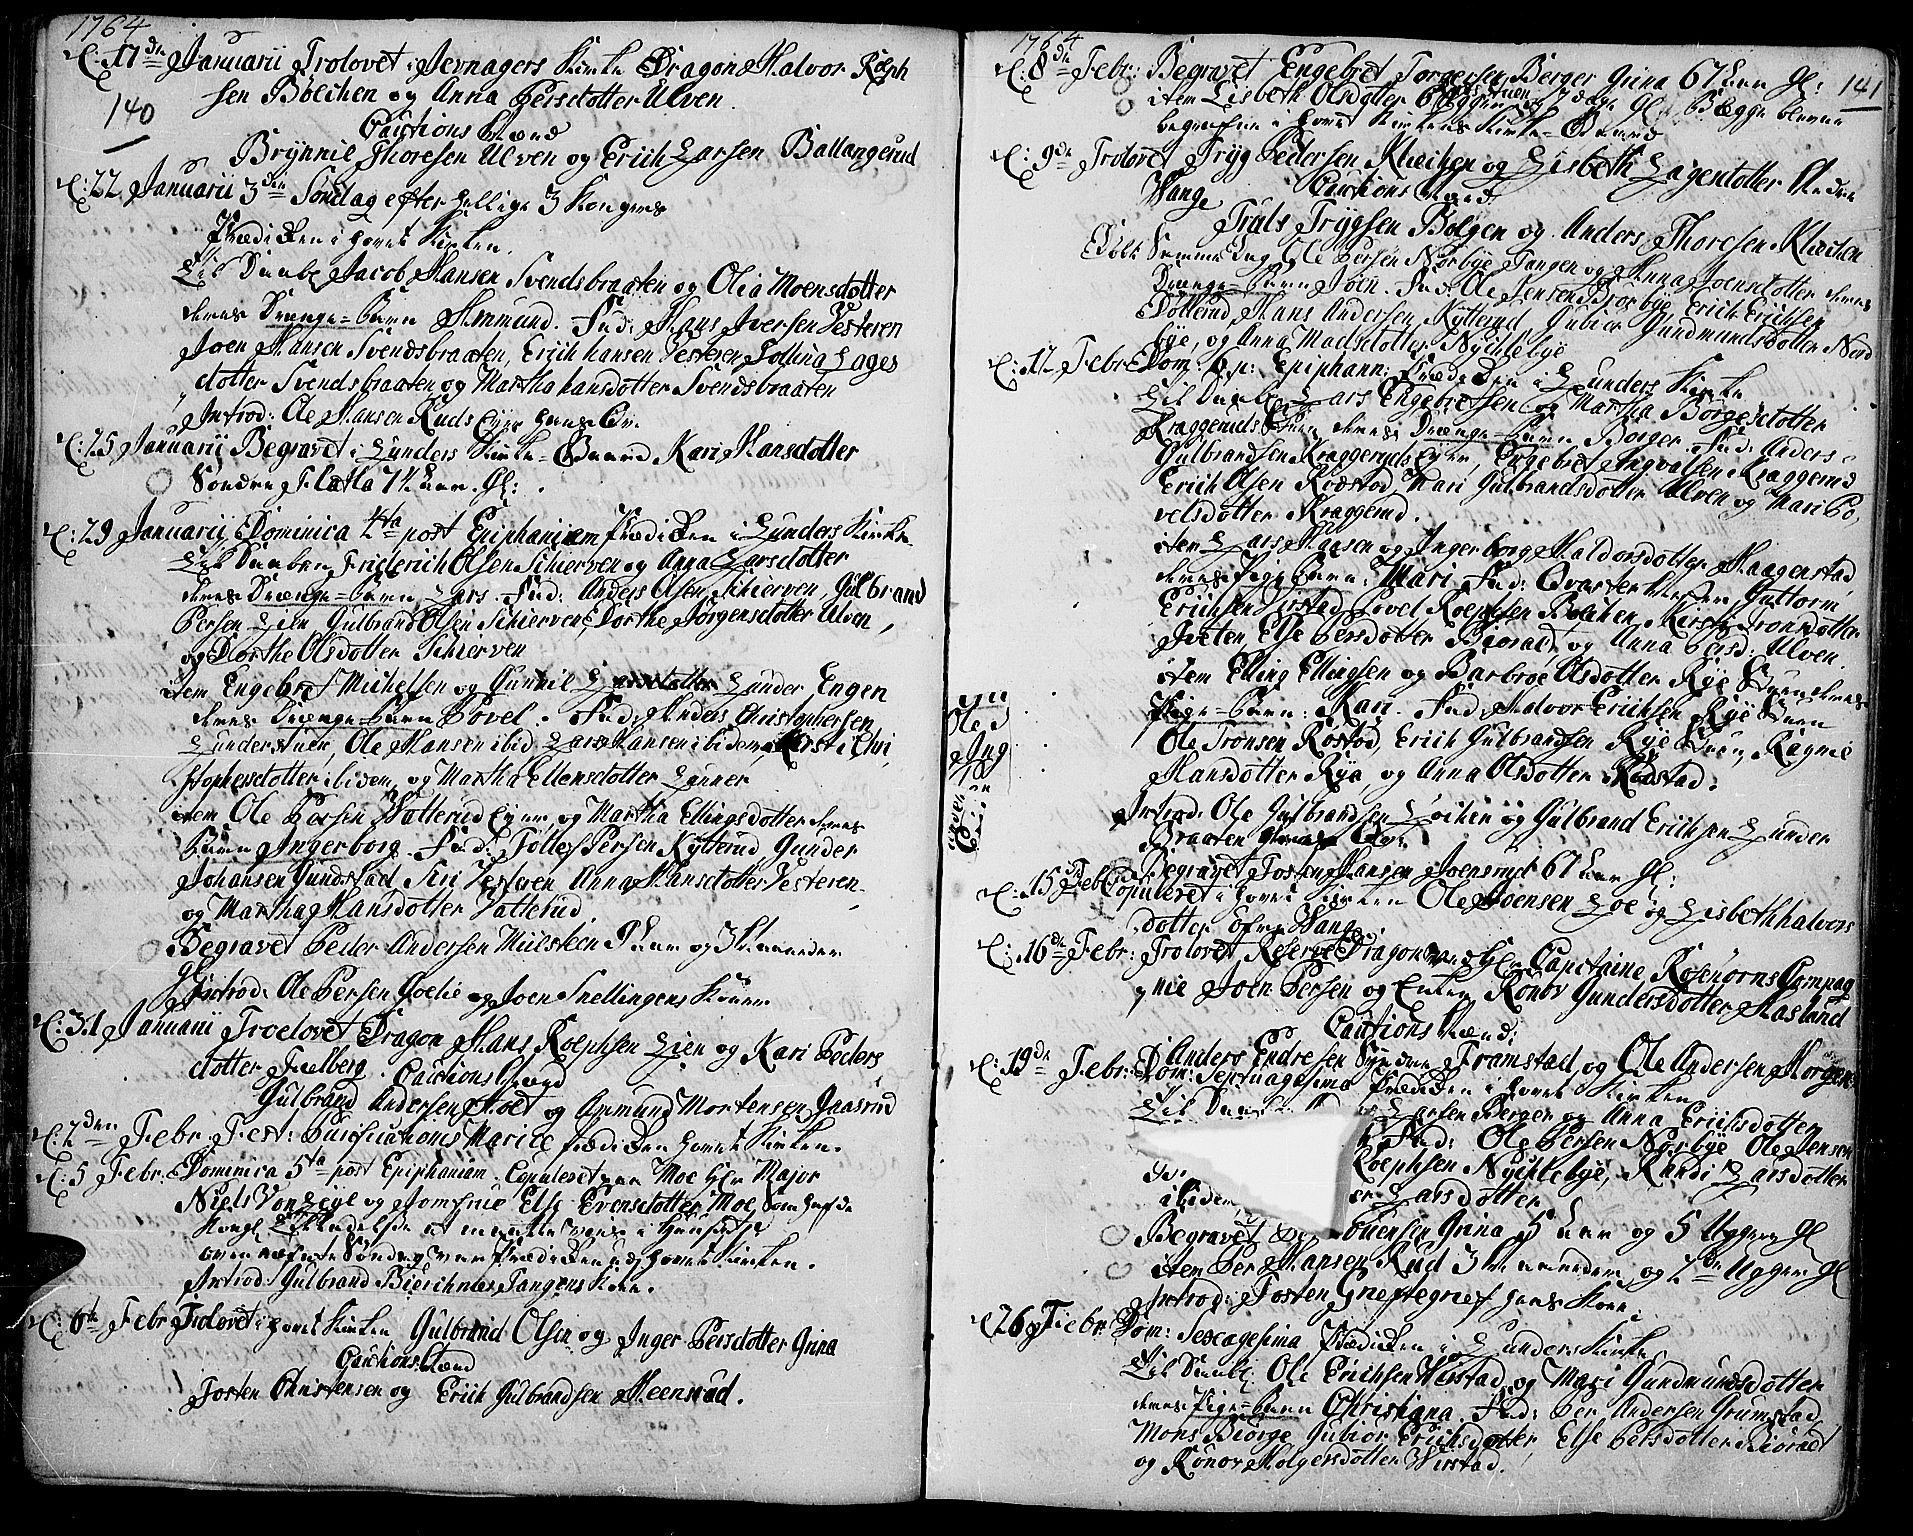 1764
D: 17de Januarii Trolovet i Jevnagers Kirke Dragon Halvor Roeph
140
sen Bölchen og Anna Persdotter Ulven.
Cautions Mænd
Brynnil Thoresen Ulven og Erich Larsen Ballangrud
D: 22 Januarii 3die Söndag efter hellige 3 Kongers
Prædiken i Hoved Kirken.
Til Daabe Jacob Hansen Svendsbraaten og Olia Moensdotter
deres Drænge-barn Ammund. Fad: Hans Iversen Vesteren
Joen Hansen Svendsbraaten, Erich hansen Vesteren Lages
dotter Svendsbraaten og Martha hansdotter Svendsbraaten
Introd: Ole Hansen Ruds Eyer hans Qv.
D: 25 Januarii Begravet i Lunders Kirke-Gaard Kari Hansdotter
Söndre Flatla 74 Aar Gl:
D: 29 Januarii Dominica 4ta post Epiphaniam Prædiken i Lunders Kirke
Til Daaben Friderich Olsen Schierven og Anna Larsdotter
deres Drænge-barn Lars. Fad: Anders Olsen Schierven, Gulbrand
Persen Lien Gulbrand Olsen Schierven, Dorthe Jörgensdotter Ulven,
og Dorthe Olsdotter Schierven
item Engebret Michelsen og Gunnil Larsdotter Lunder Engen
deres Drænge-barn Povel. Fad: Anders Christophersen
Lunderstuen, Ole Hansen ibid Lars Hansen ibidem, Kirsti Chri,
stophersdotter ibidem og Martha Ellensdotter Lunner
item Ole Persen Vatterud Eyer og Martha Ellingsdotter deres
barn Ingerborg. Fad: Tollef Persen Kytterud Gunder
Johansen Gundstad Siri Vesteren Anna Hansdotter Vesteren
og Martha Hansdotter Vatterud.
Begravet Peder Andersen Miilsteen 9 Aar og 3 Maaneder
Gl
Introd: Ole Persen Goelie og Joen Snellingens Koner
D: 31 Januarii Troelovet, Dragon Hans Roephsen Lien og Kari Peders
dotter Fielberg. Cautions Mænd
Gulbrand Andersen Moet og Ammund Mortensen Gaasrud
D: 2den Febr Fest: Purificationis Mariæ Prædiken Hovet Kirken.
D: 5 Febr: Dominica 5ta post Epiphaniam Copuleret paa Moe Hr Major
Niels Von Leye og Jomfrue Else Evensdotter Moe, som hafde
Kongl Tilladelse at maatte vies i Huuset
ovennæfnte Söndag var Prædiken udi Hovet Kirken.
Introd: Gulbrand Bierchnes Tangens Kone.
D: 6te Febr Trolovet i Hovet Kirken Gulbrand Olsen og Inger Persdotter Grina
Cautions Mænd
Tosten Christensen og Erich Gulbrandsen Steensrud.
1764
141
D: 8de Febr: Begravet Engebret Torgersen Berger Grina 67 Aar Gl:
item Lisbeth Olsdotter Gl: Begge bleve
begravne i Hovet Kirkens Kirke-Gaard
D: 9de Trolovet Tryg Pedersen Klæchen og Lisbeth Lagesdotter
Vang Cautions Mænd
Truls Trygsen Bölgen og Anders Thoresen Klæchen
Döbt Samme Dag Ole Persen Norbye Tangen og Anna Joensdotter deres
Drænge-barn Joen. Fad: Ole Jensen Brörbye Erich Erichsen
Dötterud, Hans Andersen Kytterud, Gubiör Gundmundsdotter Nord
bye, og Anna Madsdotter Nychlebye
D: 12 Febr Dom: 5. p: Epiphann: Prædiken i Lunders Kirke
Til Daabe Lars Engebretsen og Martha Börgesdotter
Kraggeruds Eyer deres Drænge-barn Börger. Fad: Anders
Gulbrandsen Kraggeruds Eyer, Engebret Ingvalsen Kraggerud
Erich Olsen Rodstad, Mari Gulbrandsdotter Ulven og Mari Po,
velsdotter Kraggerud.
item Lars Hansen og Ingerborg Haldorsdotter Haagenstad
deres Pige Barn: Mari Fad: Qvartermester Guttorm
Erichsen Povel Roephsen Bölchen, Kirsti Tronsdotter
Jveten, Else Persdotter Biöraet, og Anna Persd: Ulven.
item Elling Ellingsen og Barbroe Olsdotter Rye Stuen deres
Pige-barn: Kari. Fad: Halvor Erichsen Rye Stuen
Ole Tronsen Rostod, Erich Gulbrandsen Rye Stuen, Ragnil
Hansdotter Rye, og Anna Olsdotter Rodstad.
Introd: Ole Gulbrandsen Löchen og Gulbrand Erichsen Lunder
Braaten Qv:
Begravet Tosten Hansen Joensrud 67 Aar Gl:
D: 15de Febr: Copuleret i Hovet Kirken Ole Joensen Loe og Lisbeth halvors
dotter öfre Vang
D: 16de Febr: Trolovet, Reserve Dragon ved Hr Capitaine Rosenörns Compag
nie Joen Persen og Enken Ronov Gundersdotter Hasland
Cautions Mænd:
Anders Endresen Söndre Tramstad og Ole Andersen Horgen
D: 19de Febr: Dom: Septuagesima Prædiken i Hovet Kirken
Til Daab Larsen Berger og Anna Erichsdotter
Fad: Ole Persen Norbye Ole Jensen
Roephsen Nychlebye, Randi Larsdotter
ibidem er Larsdotter
Begravet ouensen Grina 5 Aar og 5 Uger Gl
item Per Hansen Rud 3 Maaneder og 2de Uger Gl
Introd: Tosten Greftegref hans Kone.
D: 26 Febr: Dom: Sexagesima Prædiken i Lunders Kirke
Til Daab: Ole Erichsen Virstad og Mari Gundmundsdotter
deres Pige-barn Christiana. Fad: Per Andersen Grumstad
Mons Biörge Gubiör Erichsdotter, Else Persdotter Biöraet
og Ronov Holgersdotter Virstad.